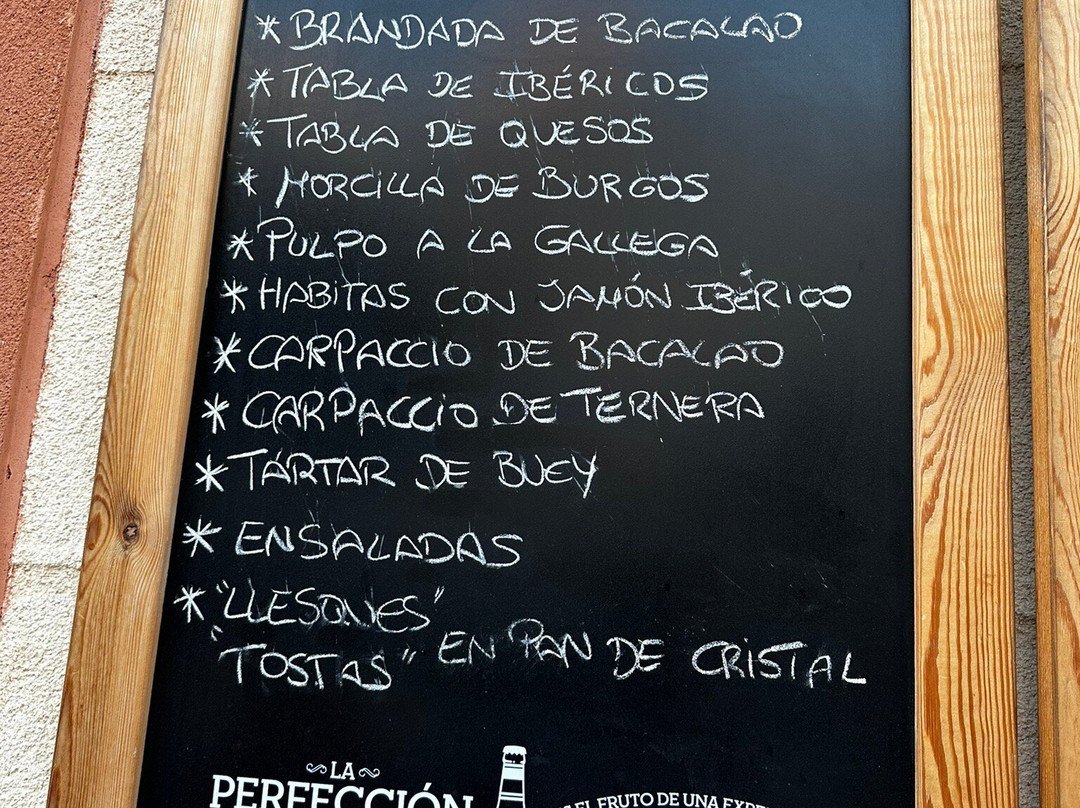 * BRANDADA DE BACALAO
* TABLA DE IBÉRICOS
* TABLA DE QUESOS
* MORCILLA DE BURGOS
* PULPO A LA GALLEGA
* HABITAS CON JAMÓN IBÉRICO
* CARPACCIO DE BACALAO
* CARPACCIO DE TERNERA
* TÁRTAR DE BUEY
* ENSALADAS
* "LLESONES"
"TOSTAS" EN PAN DE CRISTAL
LA
PERFECCIÓN
EL FRUTO DE UNA